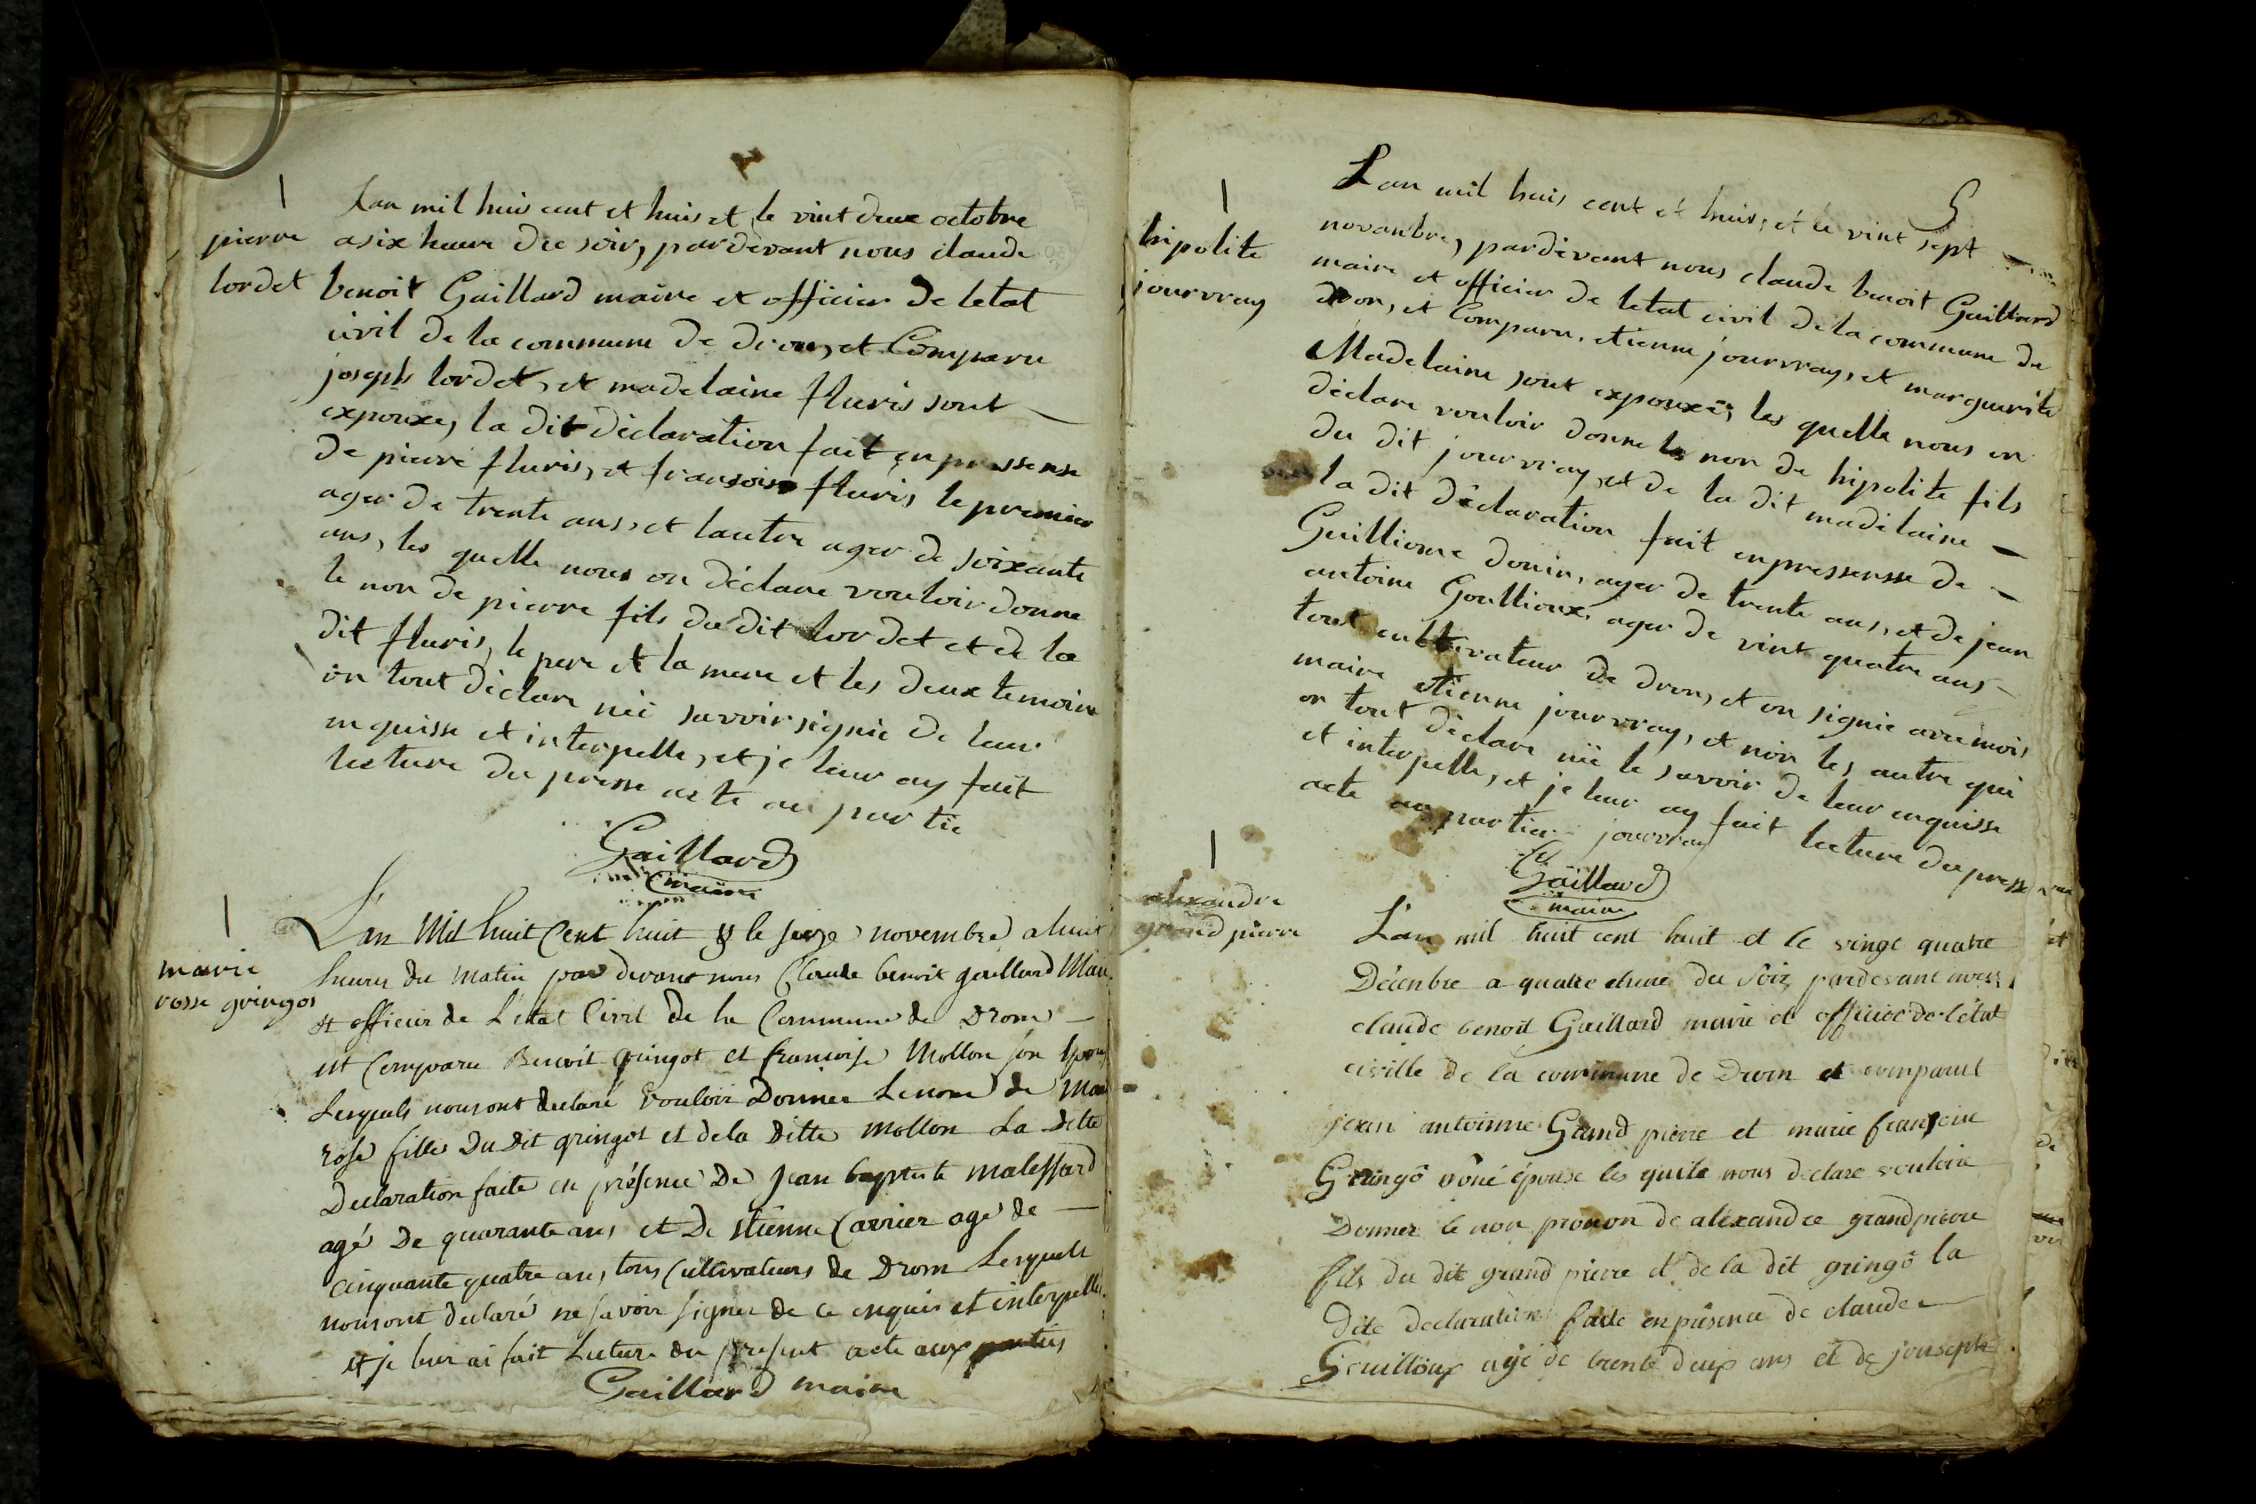 pierre
lordet
Lan mil huis cent et huis et le vint deux octobre
a six heure du soir, pardevant nous claude
benoit Gaillard maire et officier de letat
civil de la commune de dron, et Comparu
joseph lordet, et madelaine fluris sont
expouxe, la dit déclaration fait en pressense
de pierre fluris, et fransois fluris, le premier
ager de trente ans, et lautre ager de soixante
ans, les quelle nous on déclare vouloir donne
le non de pierre fils du dit lordet et de la
dit fluris, le pere et la mere et les deux temoin
on tout déclare nié savoir signié de leur
enquisse et interpelle, et je leur ay fait
lecture du presse acte au partie
Gaillard
maire
marie
rosse gringos
L'an Mil huit Cent huit & le seize novembre a huit
heures du matin par devant nous Claude benoit gaillard Mair
et officier de L'etat Civil de la Commune de Drom
est Comparu Benoit gringot et francoise Mollon son Epous
Lesquels nous ont declaré Vouloir Donner Le nom de Mari
rose fille Du Dit gringot et de la Ditte Mollon La Ditte
Declaration faite en présence De Jean baptiste malessard
agé De quarante ans et De Etienne Carrier agé de
cinquante quatre ans, tous Cultivateurs de Drom Lesquels
nous ont declaré ne savoir signer de ce enquis et interpellé
et je leur ai fait Lecture du present acte aux parties
Gaillard maire
5
hipolite
jourvray
Lan mil huis cent et huis, et le vint sept
novanbre, pardevant nous claude benoit Gaillard
maire et officier de letat civil de la commune de
dron, et Comparu, etienne jourvray, et marguerite
Madelaine sont expouxé, les quelle nous on
déclare vouloir donne le non de hipolite fils
du dit jourvray, et de la dit madelaine
la dit déclaration fait enpressensse de
Guilliome donin, ager de trente ans, et de jean
antoine Goullioux, ager de vint quatre ans
tout cultivateur de dron, et on signié avec mois
maire etienne jourvray, et non les autre qui
on tout déclare nié le savoir de leur enquisse
et interpelle, et je leur ay fait lecture du presse
acte au partie jourvray
Gaillard
maire
alexandre
grand pierre
L'an mil huit cent huit et le vingt quatre
Décenbre a quatre eheure du soir pardevant nous
claude benoit Gaillard marie et officier de l'état
civille de la commune de Dron et comparut
jean antoinne Grand pierre et marie franseise
Gringô épouse les quile nous déclare vouloire
Donner le non pronon de alexandre grandpierre
fils du dit grand pierre et de la dit gringô la
dite declaration faite enprésence de claude
Gouilloux agé de trente deux ans et de jouseph